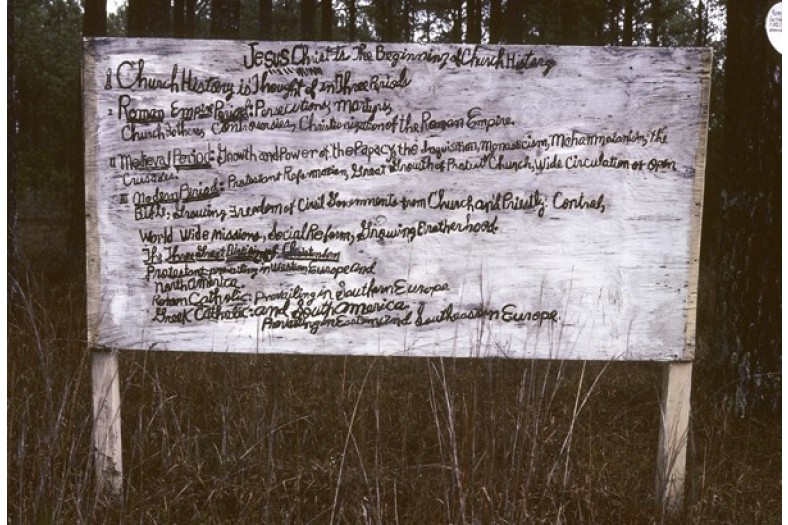 Jesus Christ Is The Beginning of Church History
Church History is Thought of in Three Periods
I Roman Empire Period: Persecutions, Martyrs,
Church Fathers, Controversies, Christianization of the Roman Empire.
II Medieval Period: Growth and Power of the Papacy, the Inquisition, Monasticism, Mohammedanism, the
Crusades.
III Modern Period: Protestant Reformation, Great Growth of Church, Wide Circulation of Open
Bible, Growing Freedom of Civil Governments from Church and Priestly Control,
World Wide Missions, Social Reform, Growing Brotherhood.
The Three Great Divisions of Christendom
Protestant: prevailing in Western Europe and
North America
Roman Catholic: Prevailing in Southern Europe
Greek Catholic: and South America
Prevailing in Eastern and Southeastern Europe.